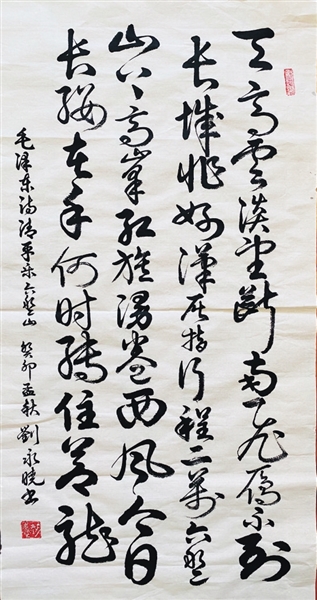 天高雲淡望斷南飞雁不到
长城非好漢屈指行程二萬六盘
山上高峯红旗漫卷西风今日
长缨在手何时缚住苍龙
毛泽东诗清平乐六盘山 癸卯孟秋 劉永晓书